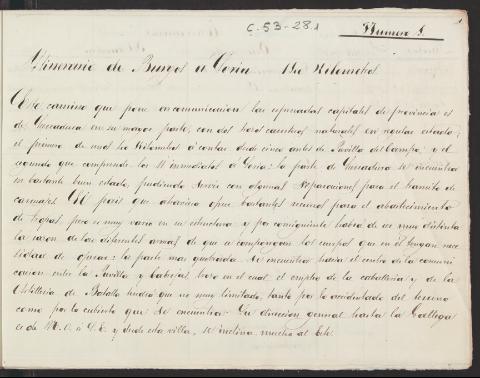 C-53-28.1
Numero 5.
1
Ytinerario de Burgos á Soria 134 Kilometros.
Este camino que pone en comunicacion las espresadas capitales de provincia es
de herradura en su mayor parte, con dos trozos carreteros naturales en regular estado;
el primero de unos Kilometros á contar desde cinco antes de Revilla del Campo, y el
segundo que comprende los 11 inmediatos á Soria: la parte de herradura se encuentra
en bastante buen estado, pudiendo servir con algunas reparaciones para el transito de
carruajes. El pais que atraviesa ofrece bastantes recursos para el abastecimiento
de tropas, pero es muy vario en su estructura y por consiguiente habrá de ser muy distinta
la accion de las diferentes armas de que se compongan los cuerpos que en él tengan nece
sidad de operar: la parte mas quebrada se encuentra hacia el centro de la comuni
cacion entre la Revilla y Cabrejas, trozo en el cual el empleo de la caballeria y de la
Artilleria de Batalla tendrá que ser muy limitado, tanto por lo accidentado del terreno
como por lo cubierto que se encuentra. La direccion general hasta la Gallega
es de N.O. á S.E. y desde esta villa, se inclina mucho al Este.